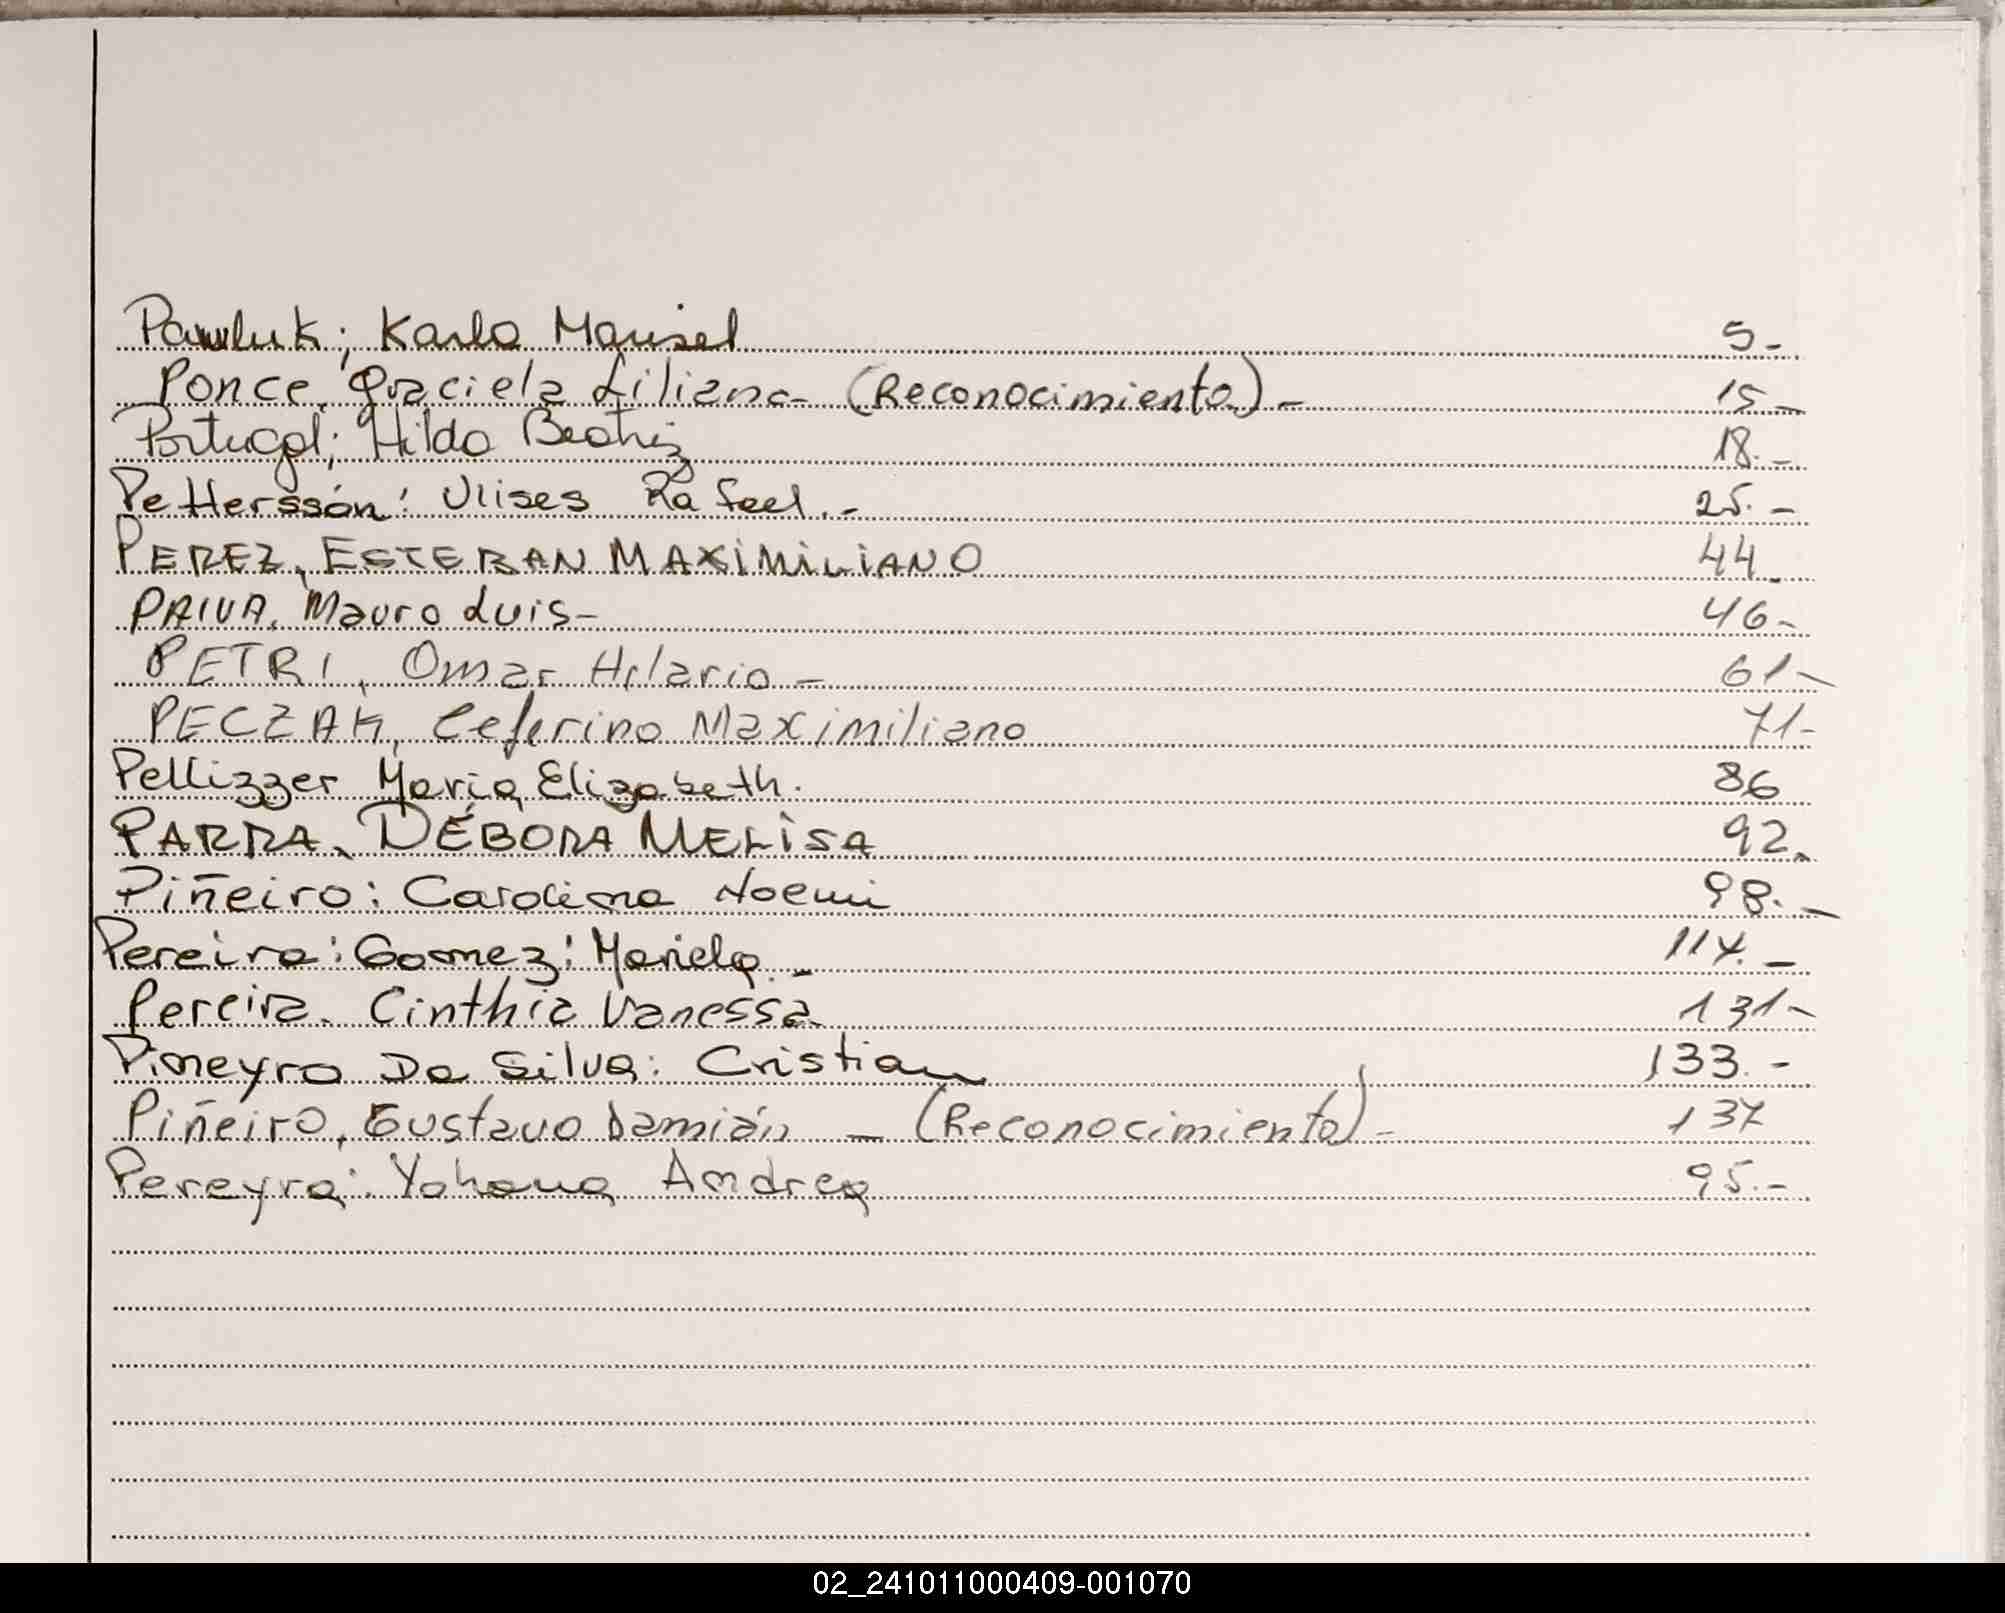 Pawluk; Karla Marisel 5-
Ponce, Graciela Liliana- (Reconocimiento)- 15-
Portugal; Hilda Beatriz 18.-
Pettersson: Ulises Rafael.- 25.-
PEREZ, ESTEBAN MAXIMILIANO 44-
PAIVA, Mauro Luis- 46-
PETRI, Omar Hilario- 61-
PECZAK, Ceferino Maximiliano 71-
Pellizzer María Elizabeth. 86
PARRA, DÉBORA MELISA 92.
Piñeiro: Carolina Noemi 98.-
Pereira: Gomez: Mariela.- 117.-
Pereira. Cinthia Vanessa 131-
Pineyro Da Silva: Cristian 133.-
Piñeiro, Gustavo Damián - (Reconocimiento)- 137
Pereyra: Yohana Andrea 95.-
02_241011000409-001070